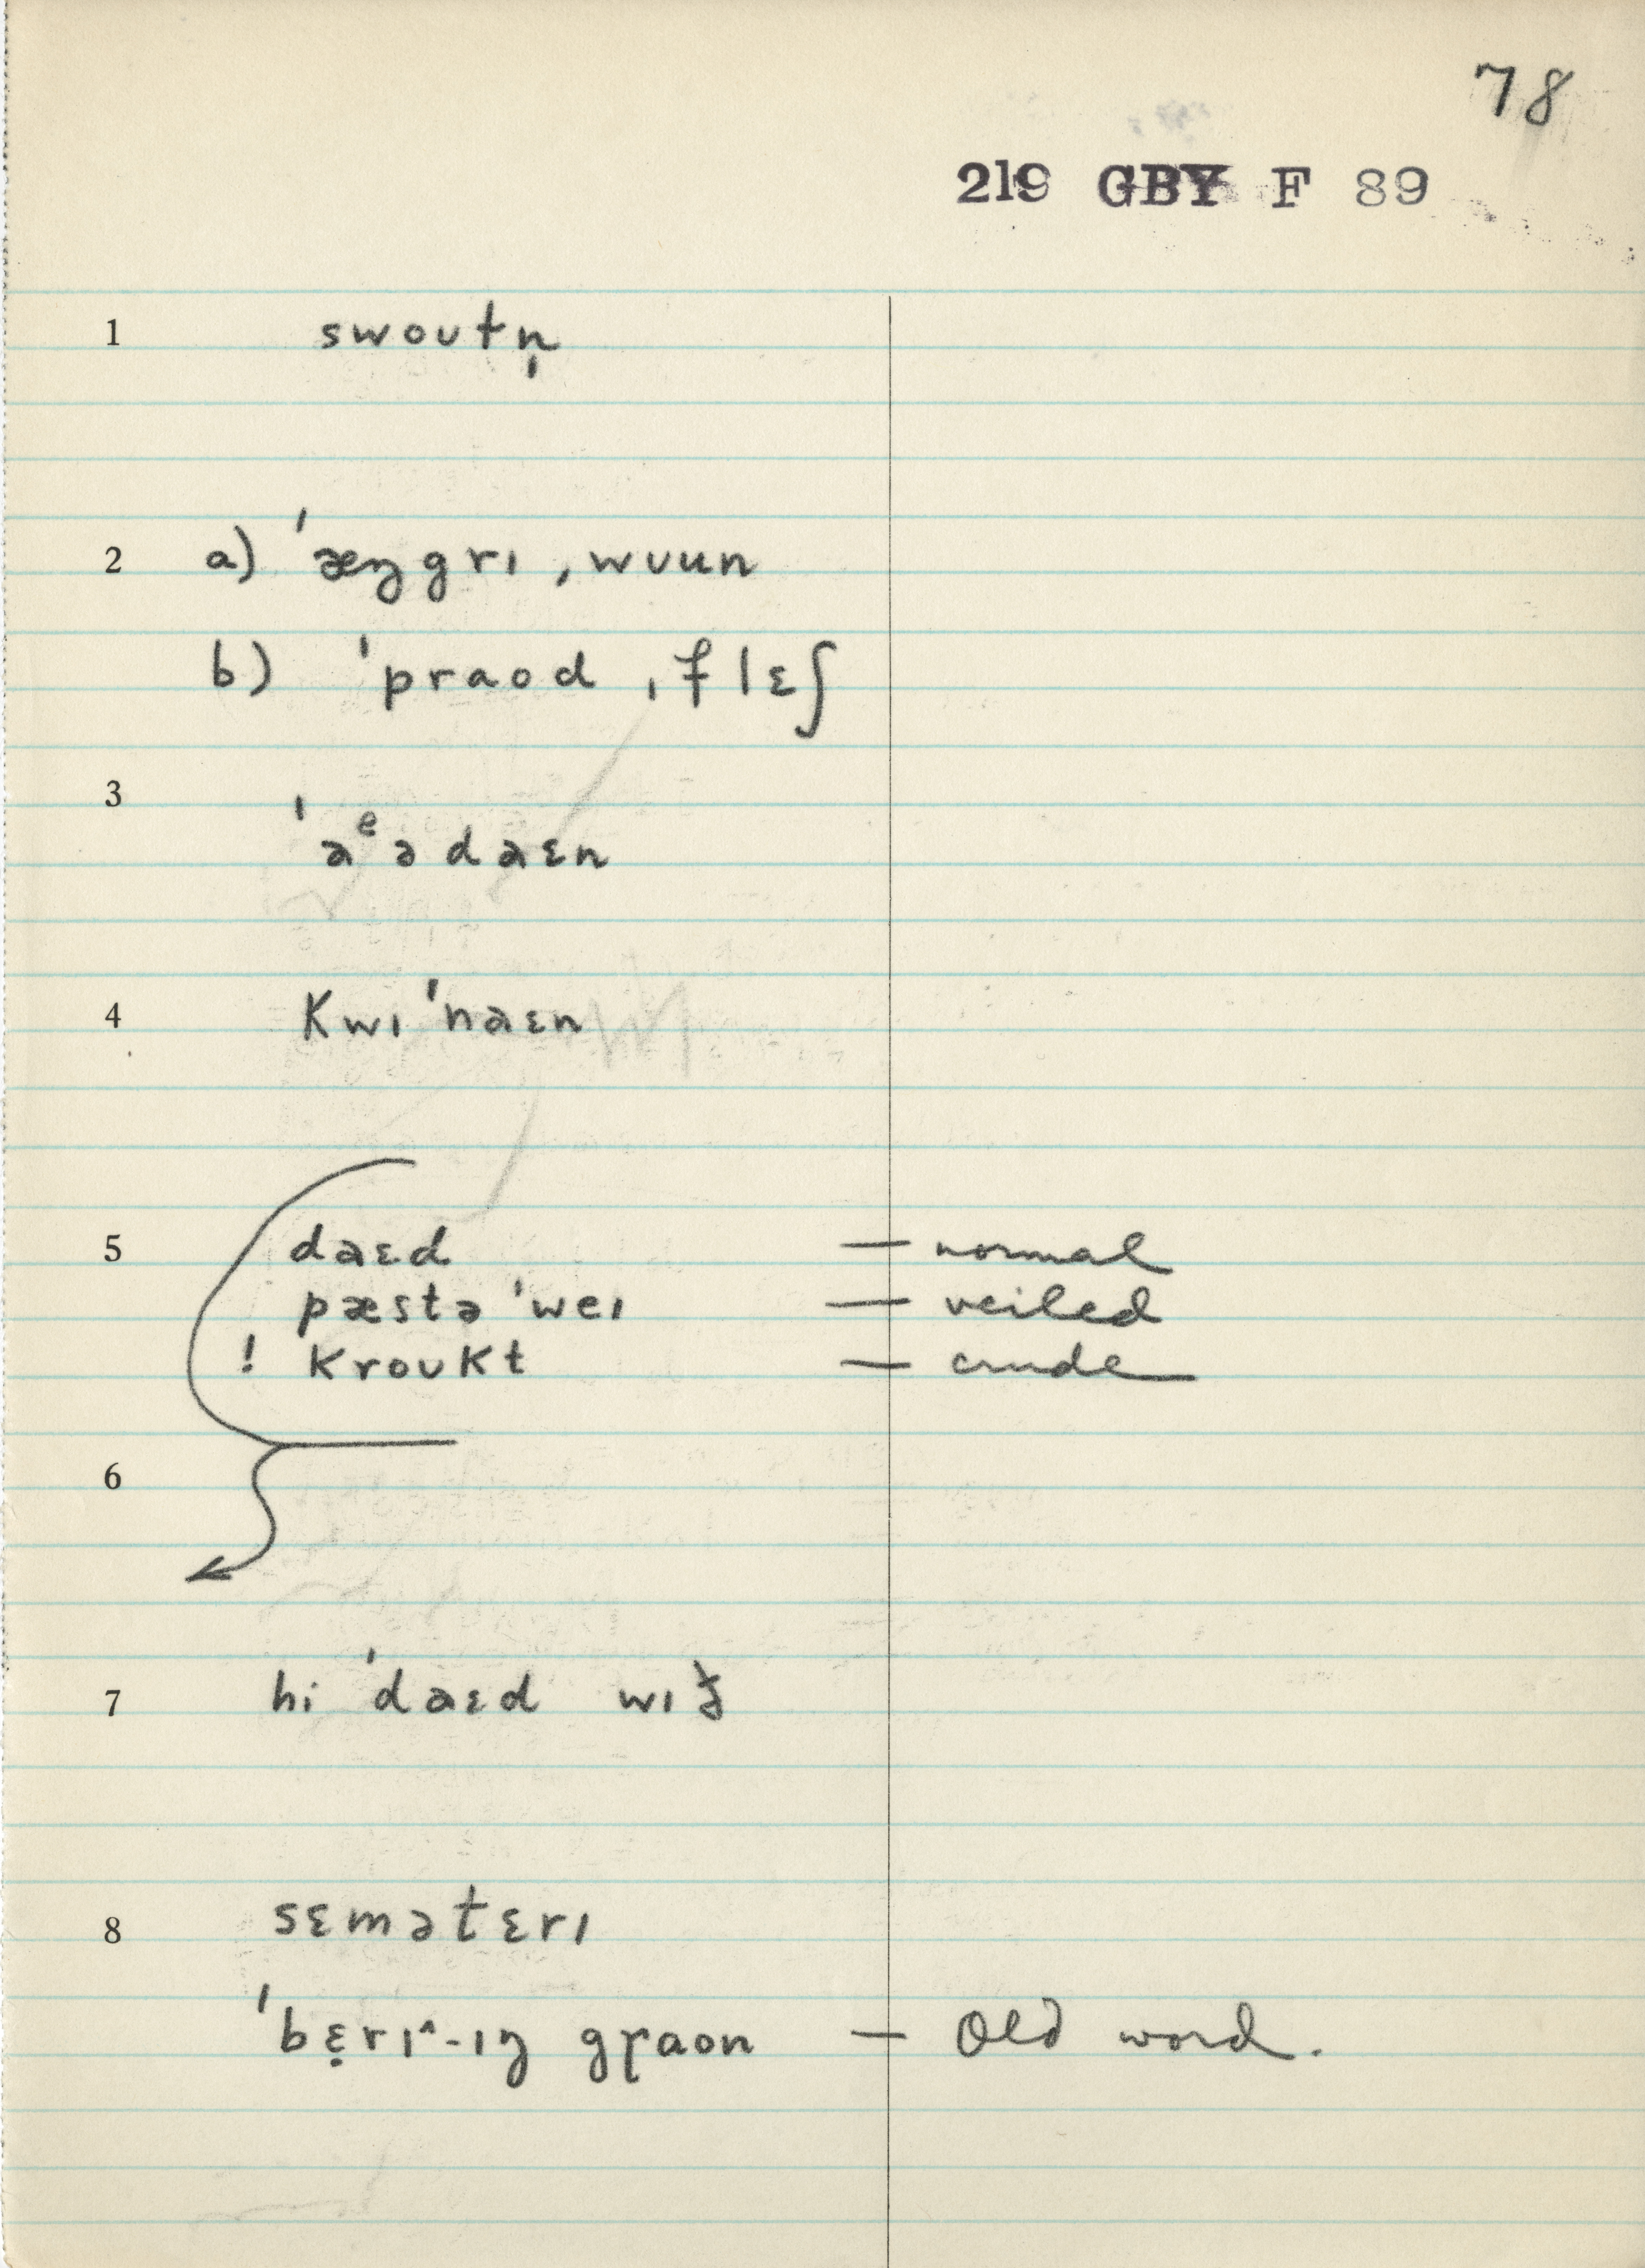 78
219 GBY F 89
1 swoutn̩
2 a) ˈæŋgrɪ ˌwuun
b) ˈpraod ˌflɛʃ
3 ˈaᵉədaɛn
4 kwɪˈnaɛn
5 daɛd — normal
pæstəˈweɪ — veiled
! kroukt — crude
6
7 hi ˈdaɛd wɪð
8 sɛmətɛrɪ
ˈbɛ̣rɪ˄-ɪŋ gɽaon — Old word.